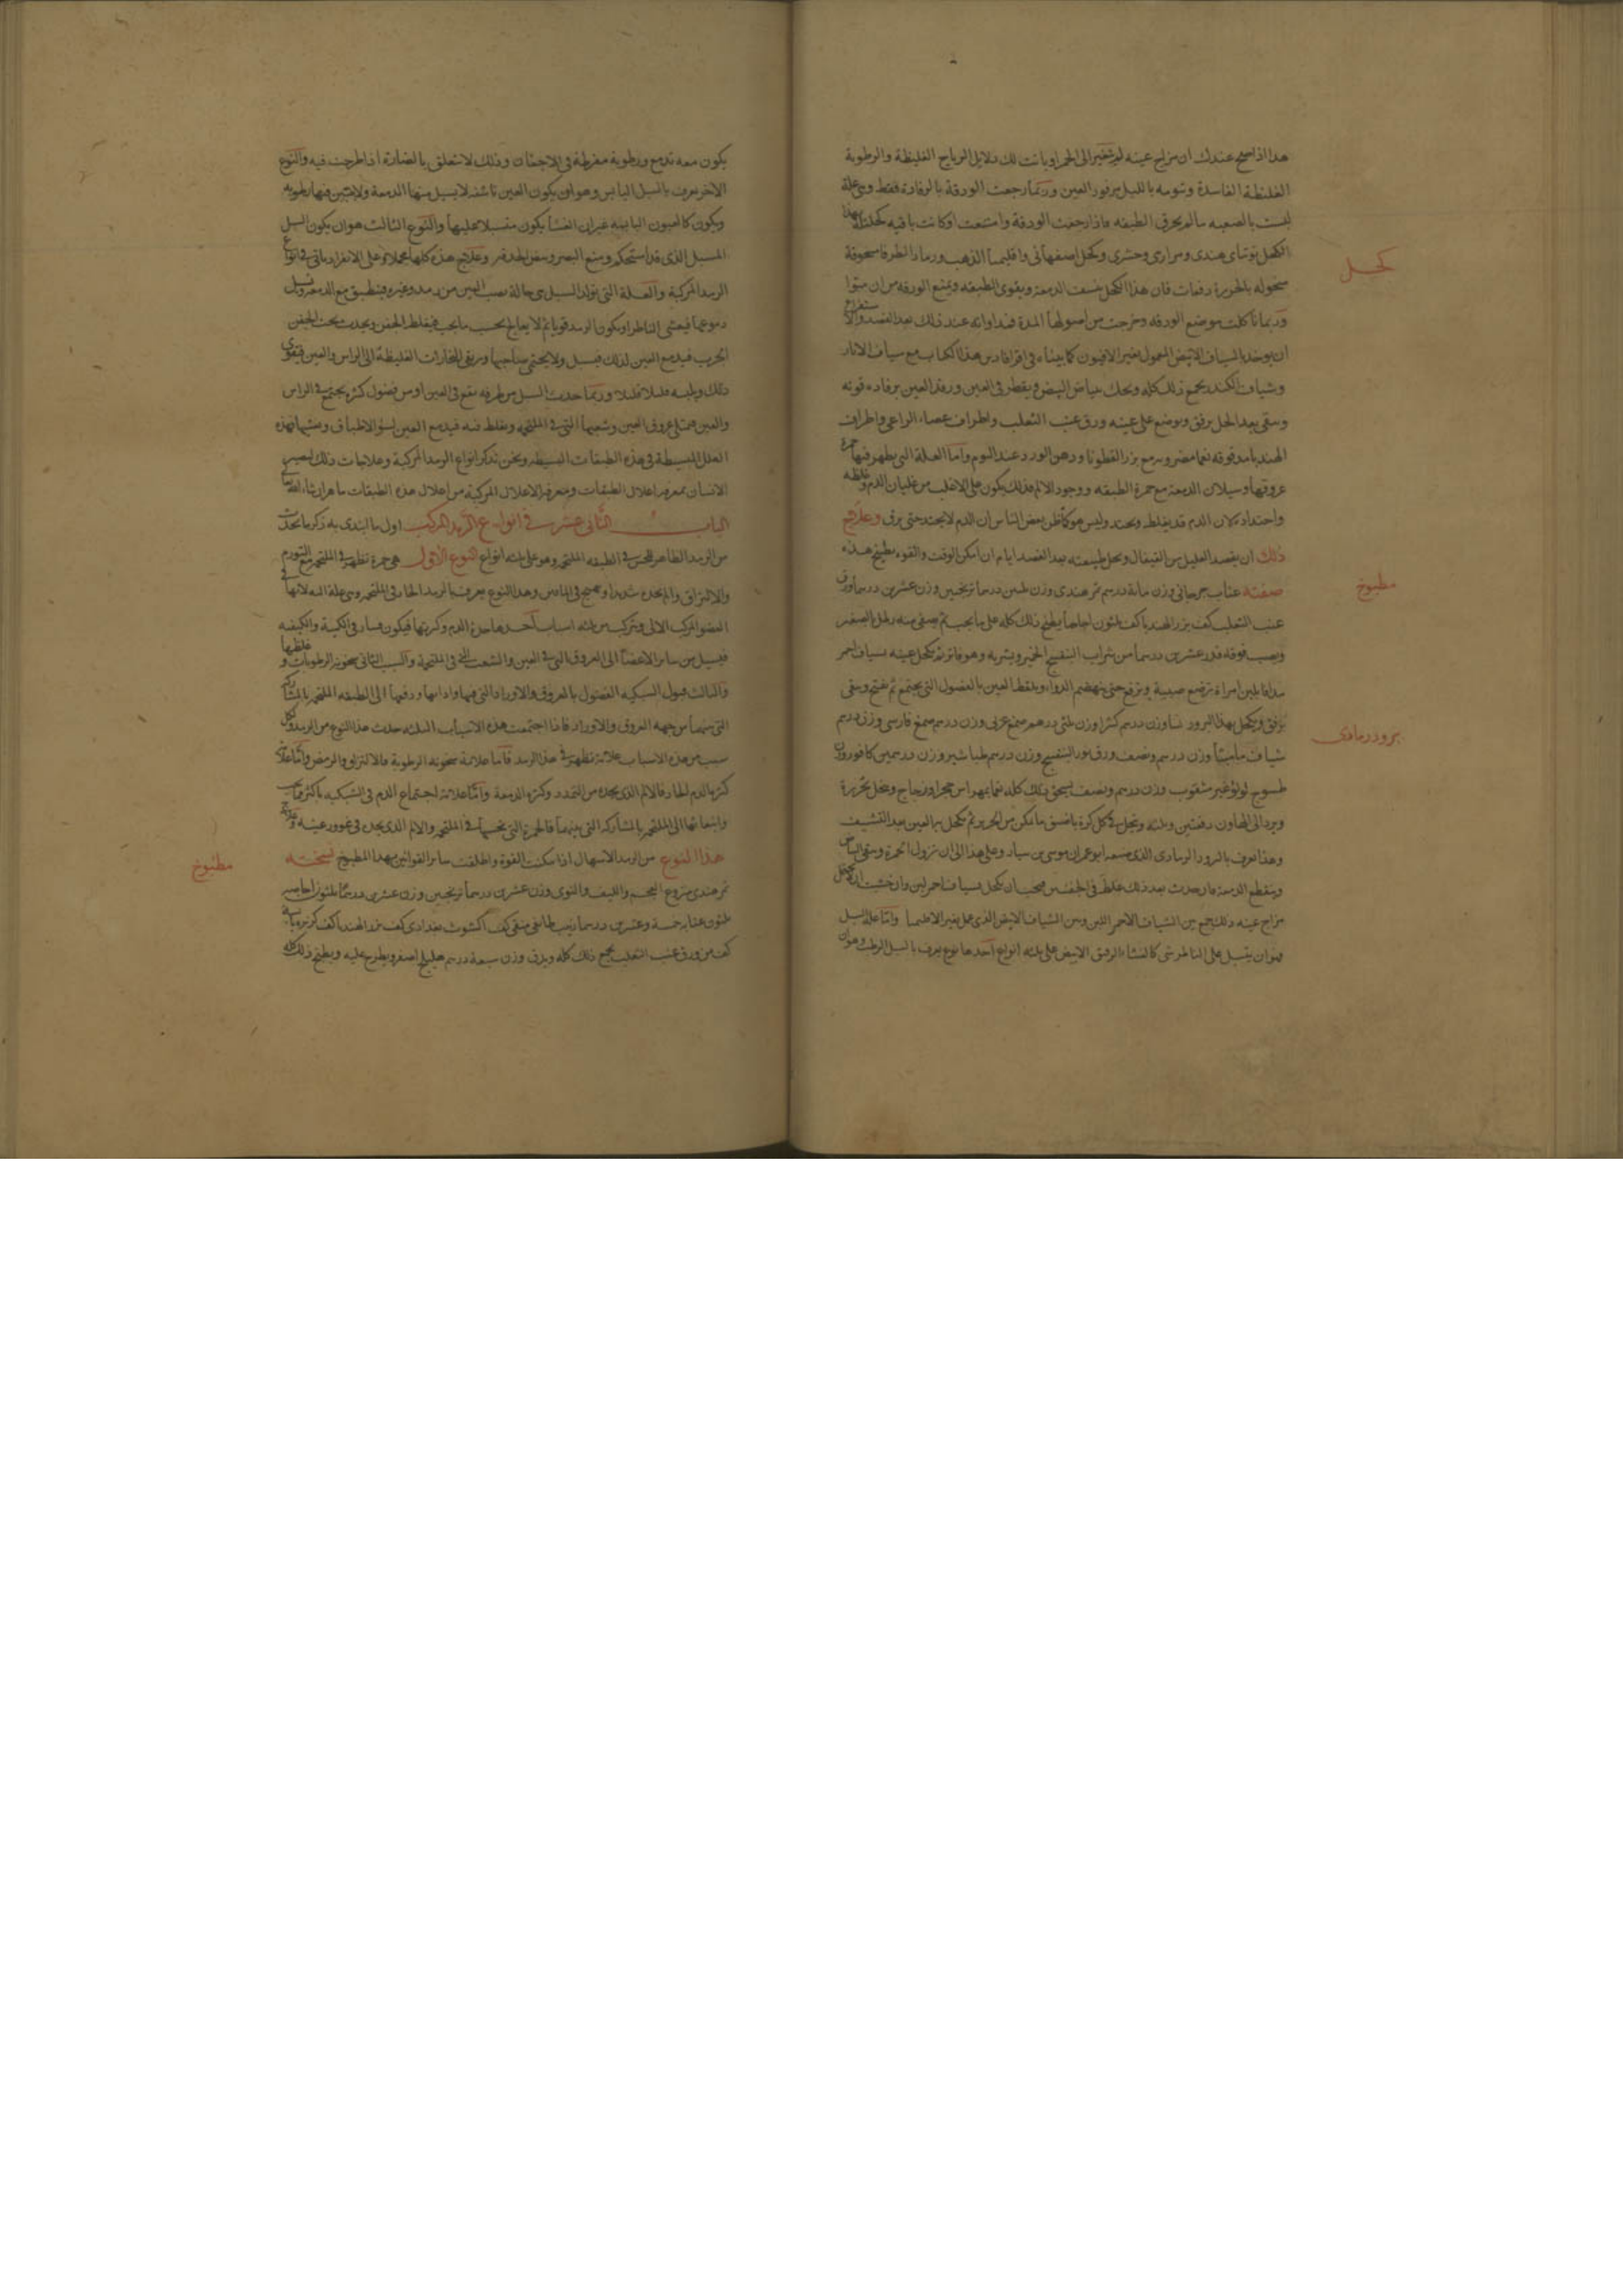 هذا اذا صح عندك ان مزاج عينه لم يتغير الى الحمر او بانت لك دلايل الرياح الغليظة والرطوبة
الغليظة الفاسدة ونومه بالليل يرفور العين وربما رجعت الورقة بالرفادة فقط وهى علة
ليست بالصعبه مالم يحرق الطبقه فاذا رجعت الورقة وامتنعت او كانت باقيه كحلت لا بهذا
الكحل توتياى هندى ومرارى وحشرى وكحل اصفهانى واقليميا الذهب ورماد الطرفا مسحوقة
كحل
منخوله بالحريرة دفعات فان هذا الكحل ينشف الدمعة ويقوى الطبقه ويمنع الورقه من ان
وربما تأكلت موضع الورقه وخرجت من اصولها المدة فمداواته عند ذلك بعد الفصد والاستفراغ
ان يوخذ بالشياف الابيض المعمول بغير الافيون كما بيناه فى اقرافادين هذا الكتاب مع شياف الابار
وشياف الكندر يجمع ذلك كله ويحك ببياض البيض ويقطر فى العين ورفد العين برفاده قويه
وسقى بعد الحل برفق ويوضع على عينه ورق عنب الثعلب واطراف عصاء الراعى واطراف
الهندبا مدقوقه نعما مضروبه مع بزر القطونا ودهن الورد عند النوم واما العلة التى يظهر فيها حمرة
عروقها وسيلان الدمعة مع حمرة الطبقه ووجود الالم فذلك يكون على الاغلب من غليان الدم وغلظه
واحتداده لان الدم قد يغلظ ويحتد وليس هو كما ظن بعض الناس ان الدم لا يحتد حتى يرق وعلاج
ذلك ان يفصد العليل من القيفال ويحل طبيعته بعد الفصد ايام ان امكن الوقت والقوه بطبيخ هذه
صفته عناب جرجانى وزن مائة درهم تمر هندى وزن ثلثين درهما ترنجبين وزن عشرين درهما ورق
مطبوخ
عنب الثعلب كف بزر الهندبا كف ثلثون اجاصا يطبخ ذلك كله على ما يجب ثم يصفى منه رطل الصغير
ويصب فوقه قدر عشرين درهما من شراب البنفسج الخمير ويشربه وهو فاتر ثم يكحل عينه بشياف احمر
مدافا بلبن امراة ترضع صبية ويرفع حتى ينهضم الدواء ويلقط العين بالفضول التى يجتمع ثم يفتح وسقى
برفق ويكحل بهذا البرود نشا وزن درهم كثيرا وزن ثلثى درهم صمغ عربى وزن درهم صمغ فارسى وزن درهم
برود رمادى
شياف ماميثا وزن درهم ونصف ورق ورد البنفسج وزن درهم طباشير وزن درهمين كافور وزن
طسوج لولو غير مثقوب وزن درهم ونصف يسحق ذلك كله نعما بمهراس حجر او زجاج وينخل بحريرة
ويرد الى الهاون دفعتين وثلثه وينخل فى كل كرة باضيق ما يمكن من الحرير ثم يكحل به العين بعد التنشيف
وهذا يعرف بالبرود الرمادى الذى صنعه ابو عمران موسى بن سيار وعلى هذا الى ان تزول الحمرة وسقى البياض
وينقطع الدمعة فان حدث بعد ذلك غلظ فى الجفنين فيجب ان يكحل بشياف احمر لين وان خشيت ان
مزاج عينه ذلك يجمع بين الشياف الاحمر اللين وبين الشياف الابيض الذى عمل بغير الاقليميا واما علة السبل
فهو ان ينسبل على الناظر شى كالغشاء الرقيق الابيض على ثلثه انواع احدها نوع يعرف بالسبل الرطب وهو ان
يكون معه تدمع ورطوبة مفرطة فى الاجفان وذلك لا يتعلق بالصنارة اذا طرحت فيه والنوع
الاخر يعرف بالسبل اليابس وهو ان يكون العين ناشفه لا يسيل منها الدمعة ولا يتبين فيها رطوبه
ويكون كالعيون اليابسه غير ان الغشا يكون منسبلا عليها والنوع الثالث هو ان يكون السبل
المسبل الذى قد استحكم ومنع البصر وبيض الحدقه وعلاج هذه كلها مجملا وعلى الانفراد ياتى فى انواع
الرمد المركبة والعلة التى تولد السبل هى حالة تصيب العين من رمد وغيره فينطبق مع الدمعة
دموعها فيعشى الناظر او يكون الرمد قويا ثم لا يعالج بحسب ما يجب فيغلظ الجفن ويحدث تحت الجفن
الجرب فيدمع العين لذلك فيسبل ولا يحتمى صاحبها ويرتقى البخارات الغليظة الى الراس والعين فيقوى
ذلك قليلا قليلا وربما حدث السبل من طرفه تقع فى العين او من فضول كثيره يجتمع فى الراس
والعين فيمتلى عروق العين وشعبها التى فى الملتحمه ويغلظ فيدمع العين لسوء الانطباق فهذه
العلل البسيطة فى هذه الطبقات البسيطه ونحن نذكر انواع الرمد المركبة وعلامات ذلك ليصير
الانسان بمعرفه اعلال الطبقات ومعرفه الاعلال المركبة من اعلال هذه الطبقات ماهرا ان شاء الله
الباب الثانى عشر فى انواع الرمد المركب اول ما ابتدى به ذكر ما يحدث
من الرمد الظاهر للحس فى الطبقه الملتحمه وهو على ثلثه انواع النوع الاول هى حمرة تظهر فى الملتحمه مع التورم
والالتزاق والم يجده شديدا وهيج فى الماقين وهذا النوع يعرف بالرمد الحار فى الملتحمه وهى علة اليه لانها فى
العضو المركب الالى ويتركب من ثلثه اسباب احدها حدة الدم وكثرتها فيكون فساد فى الكمية والكيفيه
فيسيل من سائر الاعضا الى العروق التى فى العين والشعب التى فى الملتحمة والسبب الثانى سخونه الرطوبات وغلظها
والثالث قبول الشبكيه الفضول بالعروق والاوراد التى فيها وادابها ودفعها الى الطبقه الملتحمه بالمشاركه
التى بينهما من جهه العروق والاوراد فاذا اجتمعت هذه الاسباب الثلثه حدث هذا النوع من الرمد ولكل
سبب من هذه الاسباب علامة تظهر فى هذا الرمد فاما علامة سخونه الرطوبة فالالتزاق والرمص واما علامة
كثره الدم الحار فالالم الذى يجده من التمدد وكثره الدمعة واما علامة اجتماع الدم فى الشبكيه
وانبعاثها الى الملتحمه بالمشاركه التى بينهما فالحمرة التى تحسها فى الملتحمه والالم الذى يجده فى غوور عينه وعلاج
هذا النوع من الرمد الاسهال اذا مكنت القوة واطلقت سائر القوانين بهذا المطبوخ نسخته
مطبوخ
تمر هندى منزوع العجم والليف والنوى وزن عشرين درهما ترنجبين وزن عشرين درهما ثلثون اجاصه
ثلثون عنابه خمسة وعشرين درهما زبيب طايفى منقى كف اكشوث بغدادى كف بزر الهندبا كف كزبره يابسه
كف من ورق عنب الثعلب يجمع ذلك كله ويدق وزن سبعة درهم هليلج اصفر ويطرح عليه ويطبخ ذلك كله